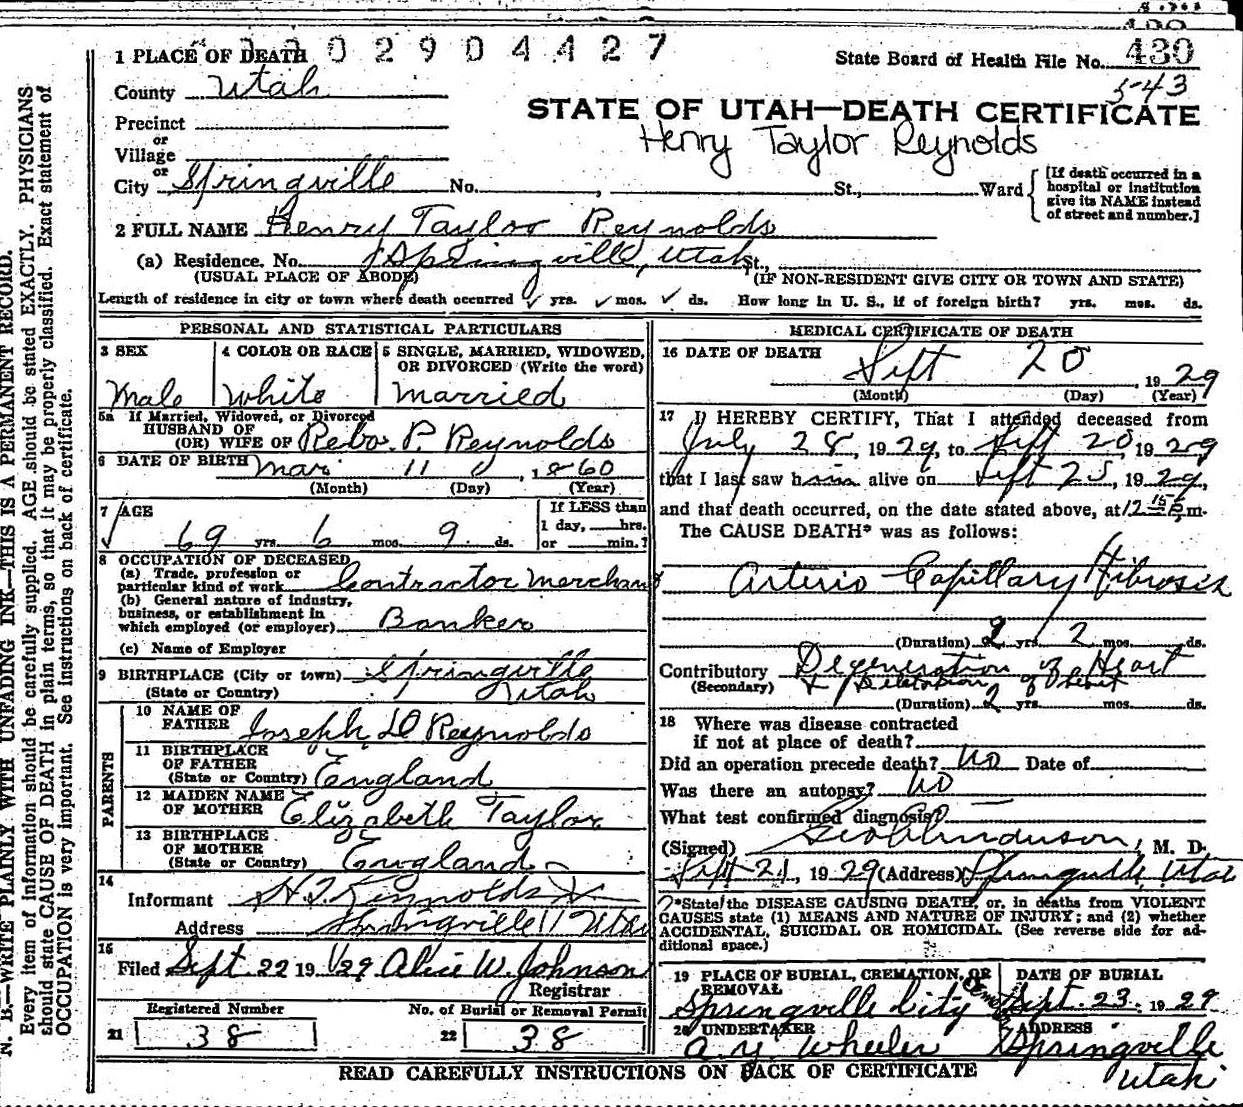 1 PLACE OF DEATH
2904427
State Board of Health File No. 430
543
County Utah
STATE OF UTAH—DEATH CERTIFICATE
Precinct
Henry Taylor Reynolds
or
Village
or
City Springville No. , St., Ward
[If death occurred in a hospital or institution give its NAME instead of street and number.]
2 FULL NAME Henry Taylor Reynolds
(a) Residence. No. Springville, Utah St.,
(USUAL PLACE OF ABODE) (IF NON-RESIDENT GIVE CITY OR TOWN AND STATE)
Length of residence in city or town where death occurred ✓ yrs. ✓ mos. ✓ ds. How long in U. S., if of foreign birth? yrs. mos. ds.
PERSONAL AND STATISTICAL PARTICULARS
3 SEX
Male
4 COLOR OR RACE
White
5 SINGLE, MARRIED, WIDOWED, OR DIVORCED (Write the word)
Married
5a If Married, Widowed, or Divorced
HUSBAND OF
(OR) WIFE OF Reba. P. Reynolds
6 DATE OF BIRTH Mar 11, 1860
(Month) (Day) (Year)
7 AGE
69 yrs. 6 mos. 9 ds.
If LESS than
1 day, hrs.
or min.?
8 OCCUPATION OF DECEASED
(a) Trade, profession or
particular kind of work Contractor Merchant
(b) General nature of industry,
business, or establishment in
which employed (or employer) Banker
(c) Name of Employer
9 BIRTHPLACE (City or town) Springville
(State or Country) Utah
PARENTS
10 NAME OF
FATHER Joseph D Reynolds
11 BIRTHPLACE
OF FATHER
(State or Country) England
12 MAIDEN NAME
OF MOTHER Elizabeth Taylor
13 BIRTHPLACE
OF MOTHER
(State or Country) England
14
Informant H. T. Reynolds Jr
Address Springville Utah
15
Filed Sept. 22 1929 Alice W. Johnson
Registrar
Registered Number No. of Burial or Removal Permit
21 38 22 38
MEDICAL CERTIFICATE OF DEATH
16 DATE OF DEATH
Sept 20, 1929
(Month) (Day) (Year)
17 I HEREBY CERTIFY, That I attended deceased from
July 28, 1929, to Sept 20, 1929
that I last saw him alive on Sept 20, 1929,
and that death occurred, on the date stated above, at 12 15 m.
The CAUSE DEATH* was as follows:
Arterio Capillary Fibrosis
(Duration) 2 yrs. 2 mos. ds.
Contributory Degeneration of Heart
(Secondary) & Dilatation of heart
(Duration) 2 yrs. mos. ds.
18 Where was disease contracted
if not at place of death?
Did an operation precede death? No Date of
Was there an autopsy? No
What test confirmed diagnosis?
(Signed) Geo Anderson, M. D.
Sept 21, 1929 (Address) Springville, Utah
*State the DISEASE CAUSING DEATH, or, in deaths from VIOLENT
CAUSES state (1) MEANS AND NATURE OF INJURY; and (2) whether
ACCIDENTAL, SUICIDAL OR HOMICIDAL. (See reverse side for ad-
ditional space.)
19 PLACE OF BURIAL, CREMATION, OR
REMOVAL
Springville City
DATE OF BURIAL
Sept. 23. 1929
20 UNDERTAKER
A. Y. Wheeler
ADDRESS
Springville
Utah
READ CAREFULLY INSTRUCTIONS ON BACK OF CERTIFICATE
N. B.—WRITE PLAINLY WITH UNFADING INK—THIS IS A PERMANENT RECORD.
Every item of information should be carefully supplied. AGE should be stated EXACTLY. PHYSICIANS
should state CAUSE OF DEATH in plain terms, so that it may be properly classified. Exact statement of
OCCUPATION is very important. See instructions on back of certificate.